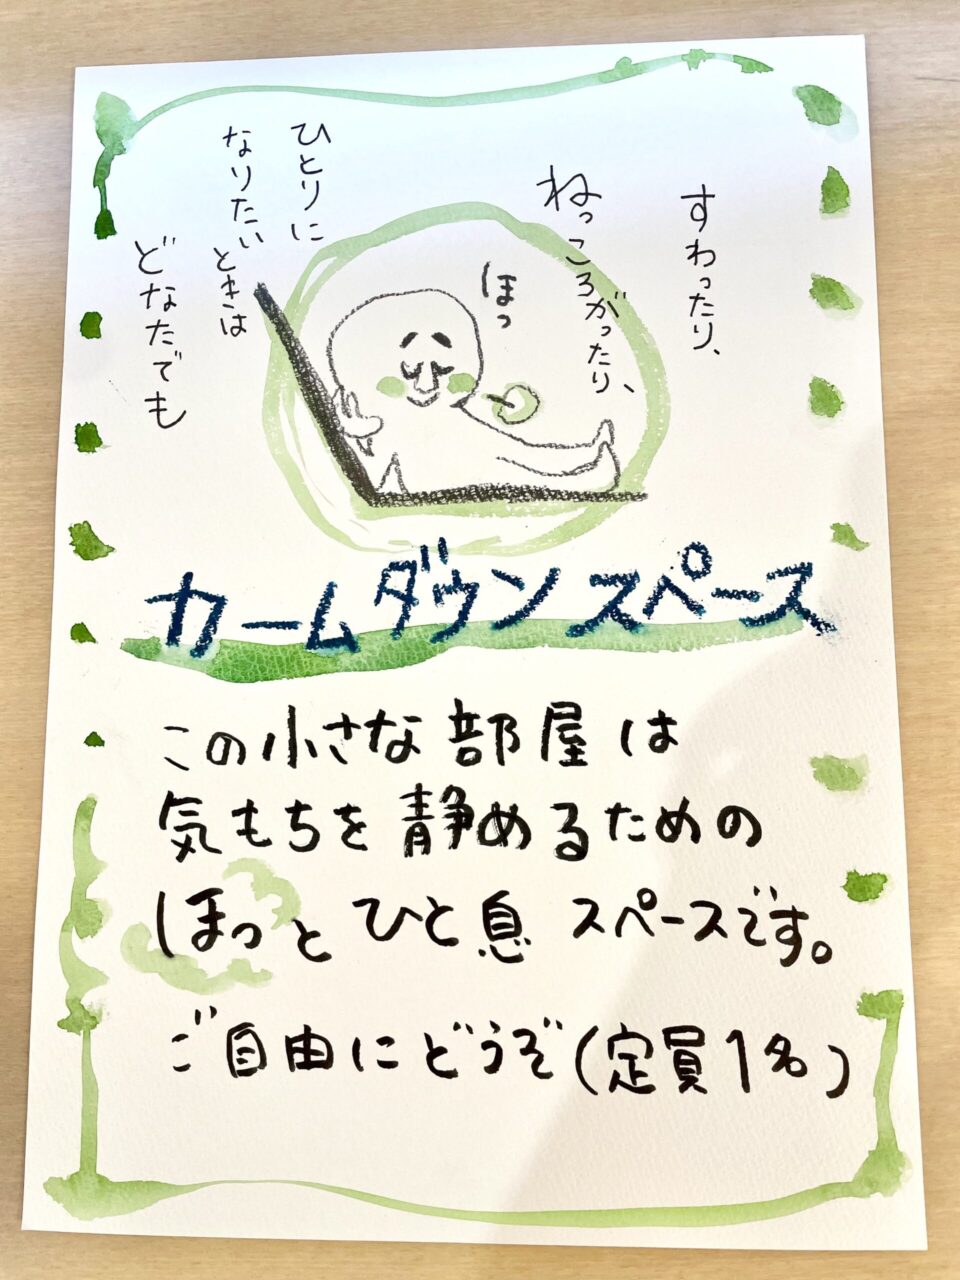 すわったり、
ねっころがったり、
ほっ
ひとりに
なりたいときは
どなたでも
カームダウンスペース
この小さな部屋は
気もちを静めるための
ほっとひと息 スペースです。
ご自由にどうぞ(定員1名)